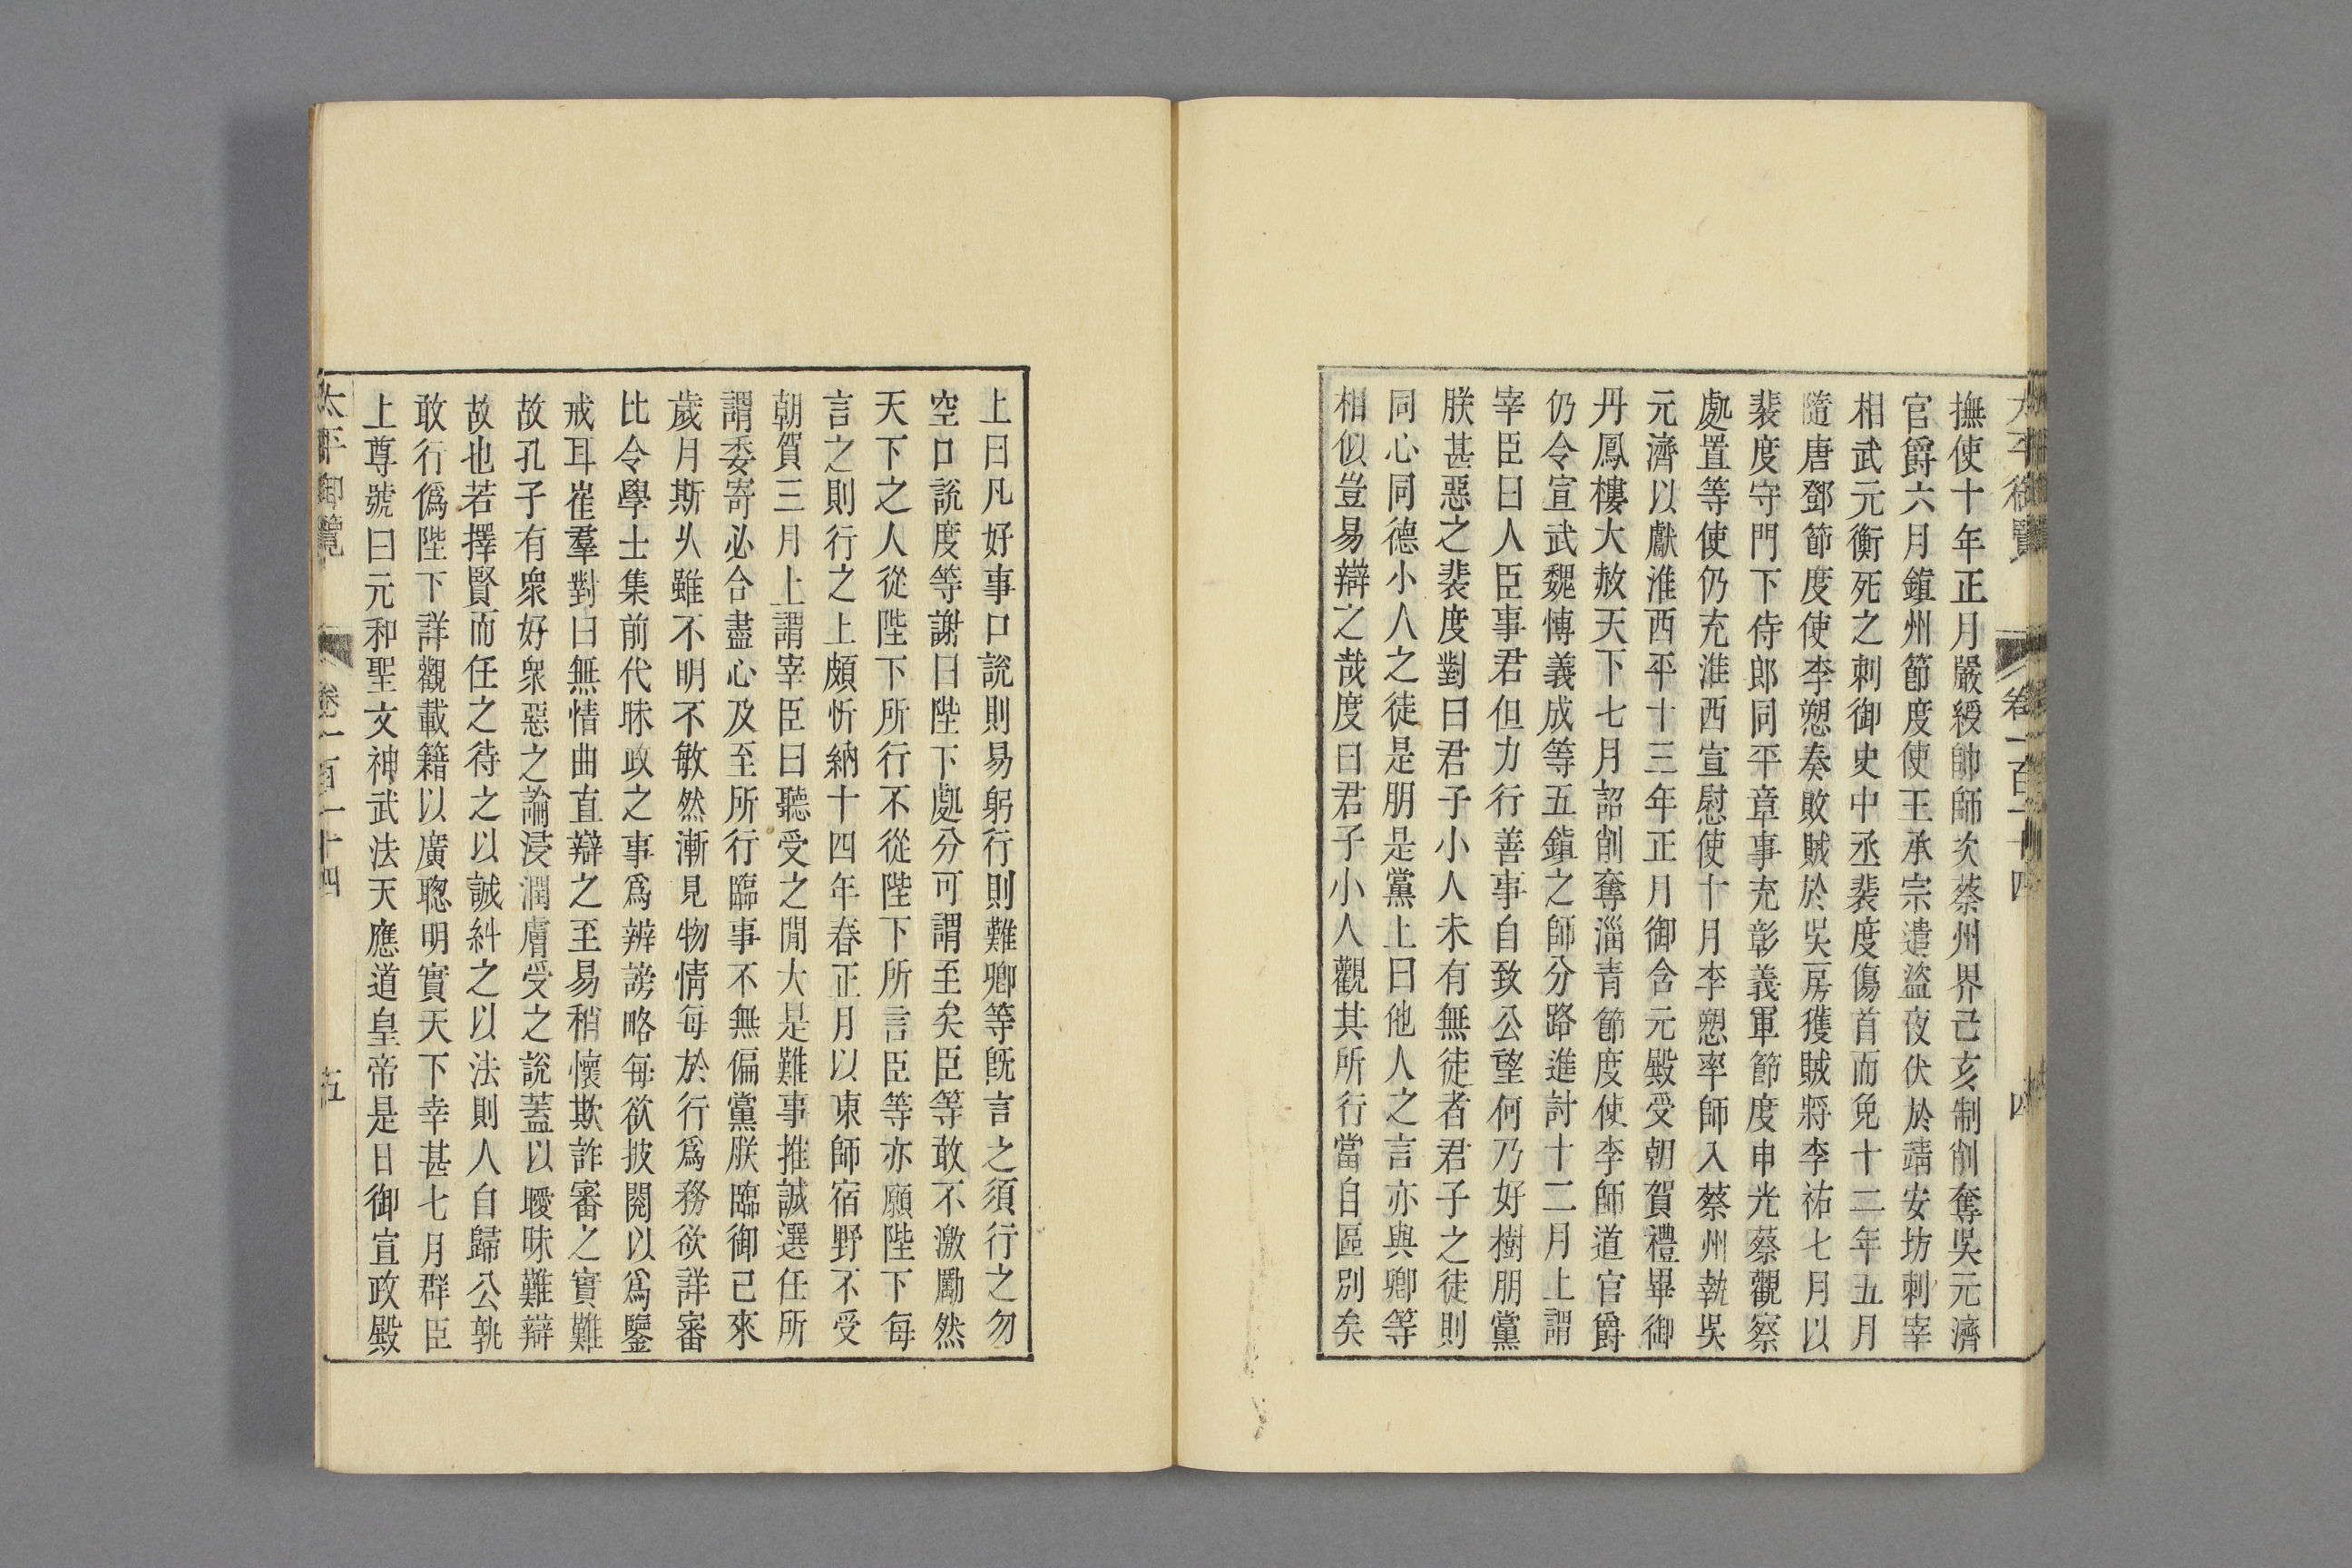 太平御覽 卷一百一十四 四
撫使十年正月嚴綬帥師次蔡州界己亥制削奪吳元濟
官爵六月鎮州節度使王承宗遣盜夜伏於靖安坊刺宰
相武元衡死之刺御史中丞裴度傷首而免十二年五月
隨唐鄧節度使李愬奏敗賊於吳房獲賊將李祐七月以
裴度守門下侍郎同平章事充彰義軍節度申光蔡觀察
處置等使仍充淮西宣慰使十月李愬率師入蔡州執吳
元濟以獻淮西平十三年正月御含元殿受朝賀禮畢御
丹鳳樓大赦天下七月詔削奪淄青節度使李師道官爵
仍令宣武魏博義成等五鎮之師分路進討十二月上謂
宰臣曰人臣事君但力行善事自致公望何乃好樹朋黨
朕甚惡之裴度對曰君子小人未有無徒者君子之徒則
同心同德小人之徒是朋是黨上曰他人之言亦與卿等
相似豈易辯之哉度曰君子小人觀其所行當自區別矣
上曰凡好事口說則易躬行則難卿等旣言之須行之勿
空口說度等謝曰陛下處分可謂至矣臣等敢不激勵然
天下之人從陛下所行不從陛下所言臣等亦願陛下每
言之則行之上頗忻納十四年春正月以東師宿野不受
朝賀三月上謂宰臣曰聽受之間大是難事推誠選任所
謂委寄必合盡心及至所行臨事不無偏黨朕臨御已來
歲月斯久雖不明不敏然漸見物情每於行爲務欲詳審
比令學士集前代昧政之事爲辨謗略每欲披閱以爲鑒
戒耳崔羣對曰無情曲直辯之至易稍懷欺詐審之實難
故孔子有衆好衆惡之論浸潤膚受之說蓋以曖昧難辯
故也若擇賢而任之待之以誠糾之以法則人自歸公孰
敢行僞陛下詳觀載籍以廣聦明實天下幸甚七月群臣
上尊號曰元和聖文神武法天應道皇帝是日御宣政殿
太平御覽 卷一百一十四 五